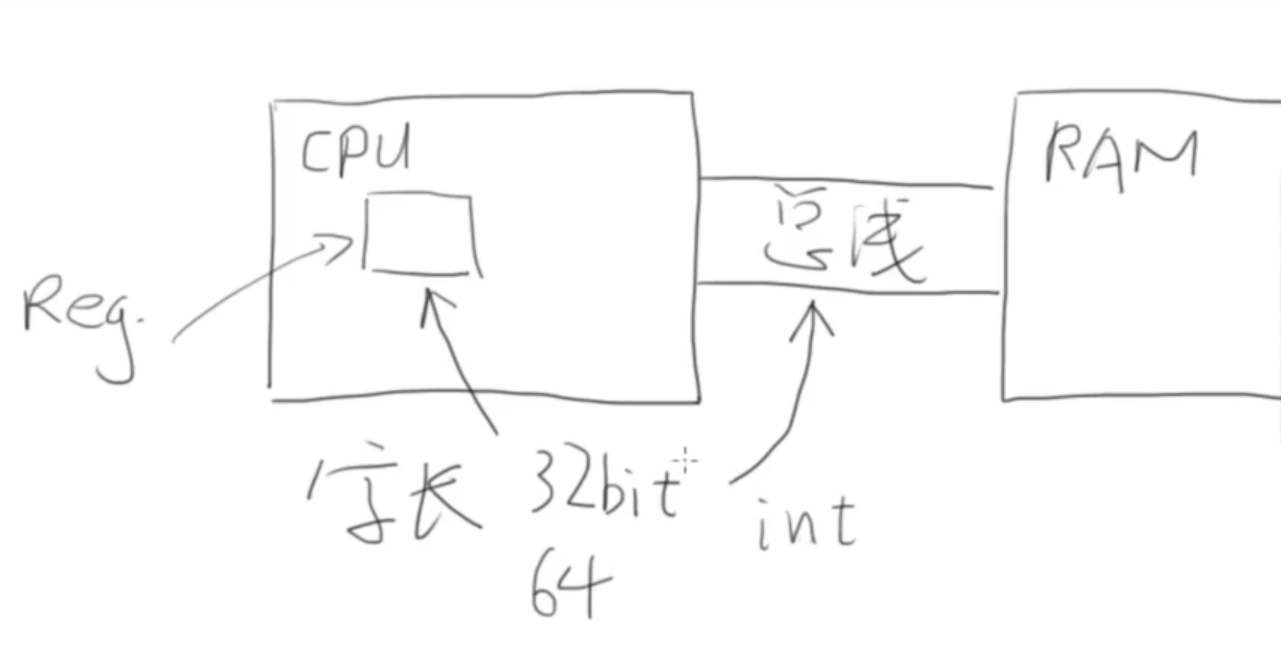 CPU
RAM
总线
Reg.
字长 32bit
int
64